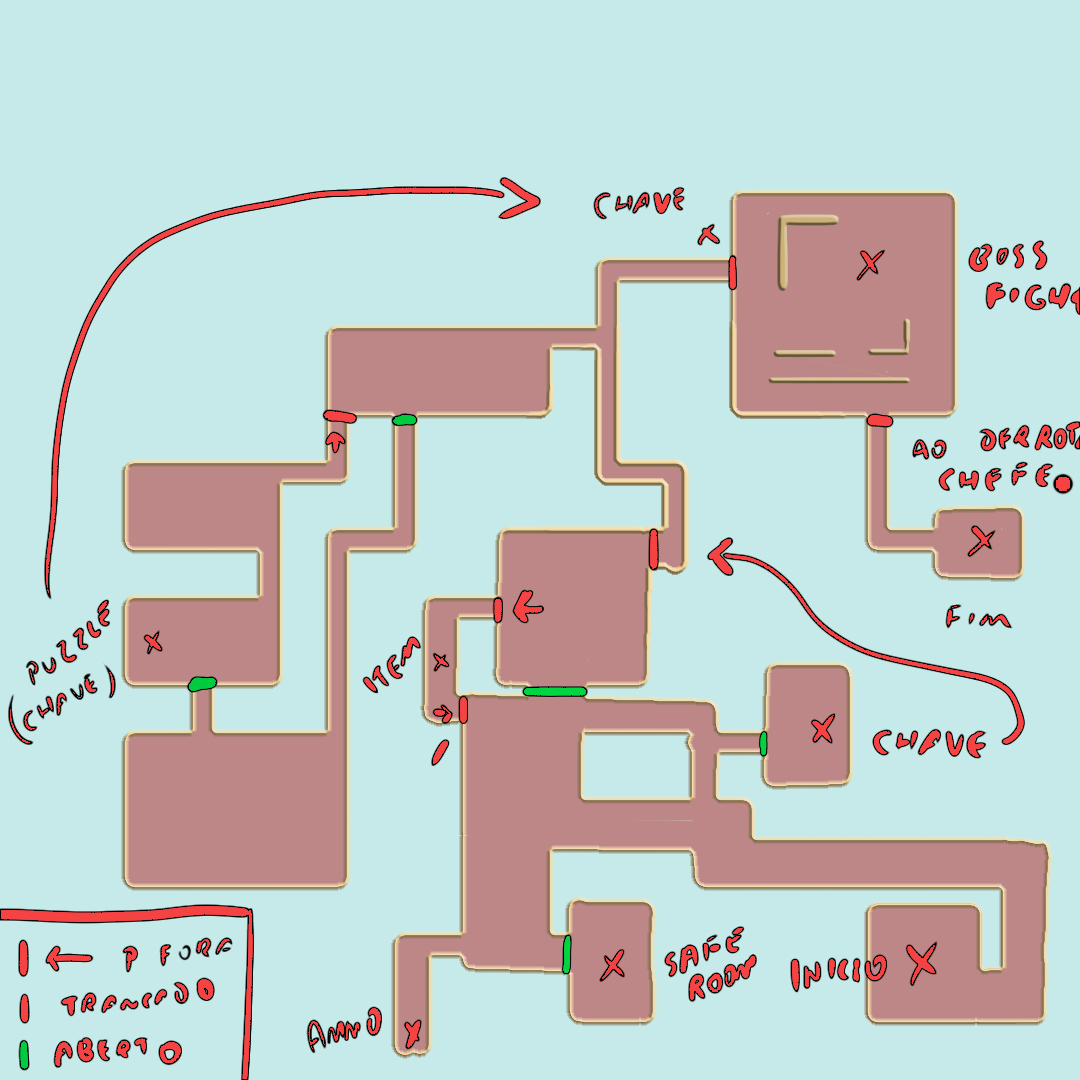 CHAVE
BOSS
FIGH
AO DERROTA
CHEFE
FIM
PUZZLE
(CHAVE)
ITEM
CHAVE
SAFE
ROOM
INICIO
AMMO
P FORA
TRANCADO
ABERTO